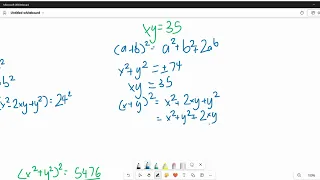 Microsoft Whiteboard
Untitled whiteboard
xy=35
(a+b)²= a²+b²+2ab
b²
x²+y² = ±74
x²2xy+y²)=24²
xy = 35
(x+y)² = x²+2xy+y²
= x²+y²+2xy
(x²+y²)² = 5476